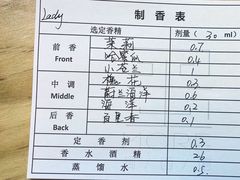 Lady
制香表
选定香精 剂量（30 ml）
前香 Front 茉莉 0.7
哈密瓜 0.4
小苍兰 1
中调 Middle 桃花 0.3
蔚兰海洋 0.6
海洋 0.2
后香 Back 百里香 0.1
定香剂 0.3
香水酒精 26
蒸馏水 0.5